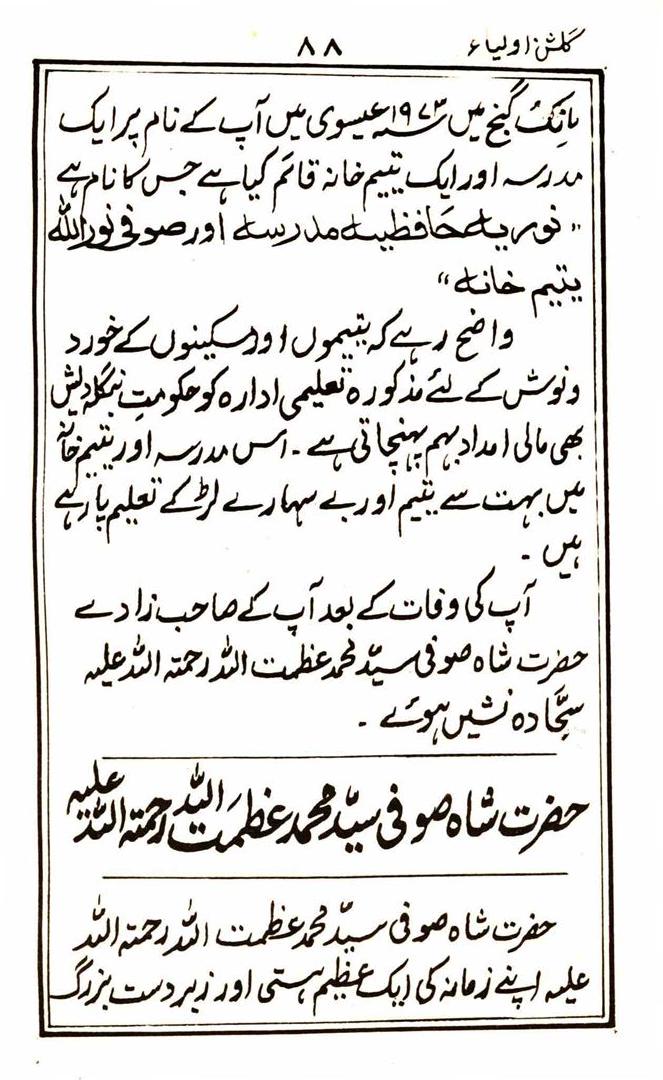 گلشن اولیاء ۸۸
مانک گنج میں ۱۹۷۳ء عیسوی میں آپ کے نام پر ایک
مدرسہ اور ایک یتیم خانہ قائم کیا ہے جس کا نام ہے
"نوریہ حافظیہ مدرسہ اور صوفی نور اللہ
یتیم خانہ"
واضح رہے کہ یتیموں اور مسکینوں کے خورد
و نوش کے لئے مذکورہ تعلیمی ادارہ کو حکومتِ بنگلہ دلیش
بھی مالی امداد بہم پہنچاتی ہے ۔ اس مدرسہ اور یتیم خانہ
میں بہت سے یتیم اور بے سہارے لڑکے تعلیم پا رہے
ہیں ۔
آپ کی وفات کے بعد آپ کے صاحب زادے
حضرت شاہ صوفی سیّد محمد عظمت اللہ رحمتہ اللہ علیہ
سجّادہ نشیں ہوئے ۔
حضرت شاہ صوفی سیّد محمد عظمت اللہ رحمتہ اللہ علیہ
حضرت شاہ صوفی سیّد محمد عظمت اللہ رحمتہ اللہ
علیہ اپنے زمانہ کی ایک عظیم ہستی اور زبردست بزرگ